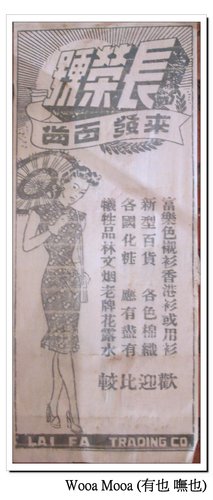 長榮號
來發百
富樂色襯衫香港衫或用衫
新型百貨 各色棉織
各國化粧 應有盡有
犧牲品林文烟老牌花露水
歡迎比較
LAI FA TRADING CO.
Wooa Mooa (有也 嘸也)